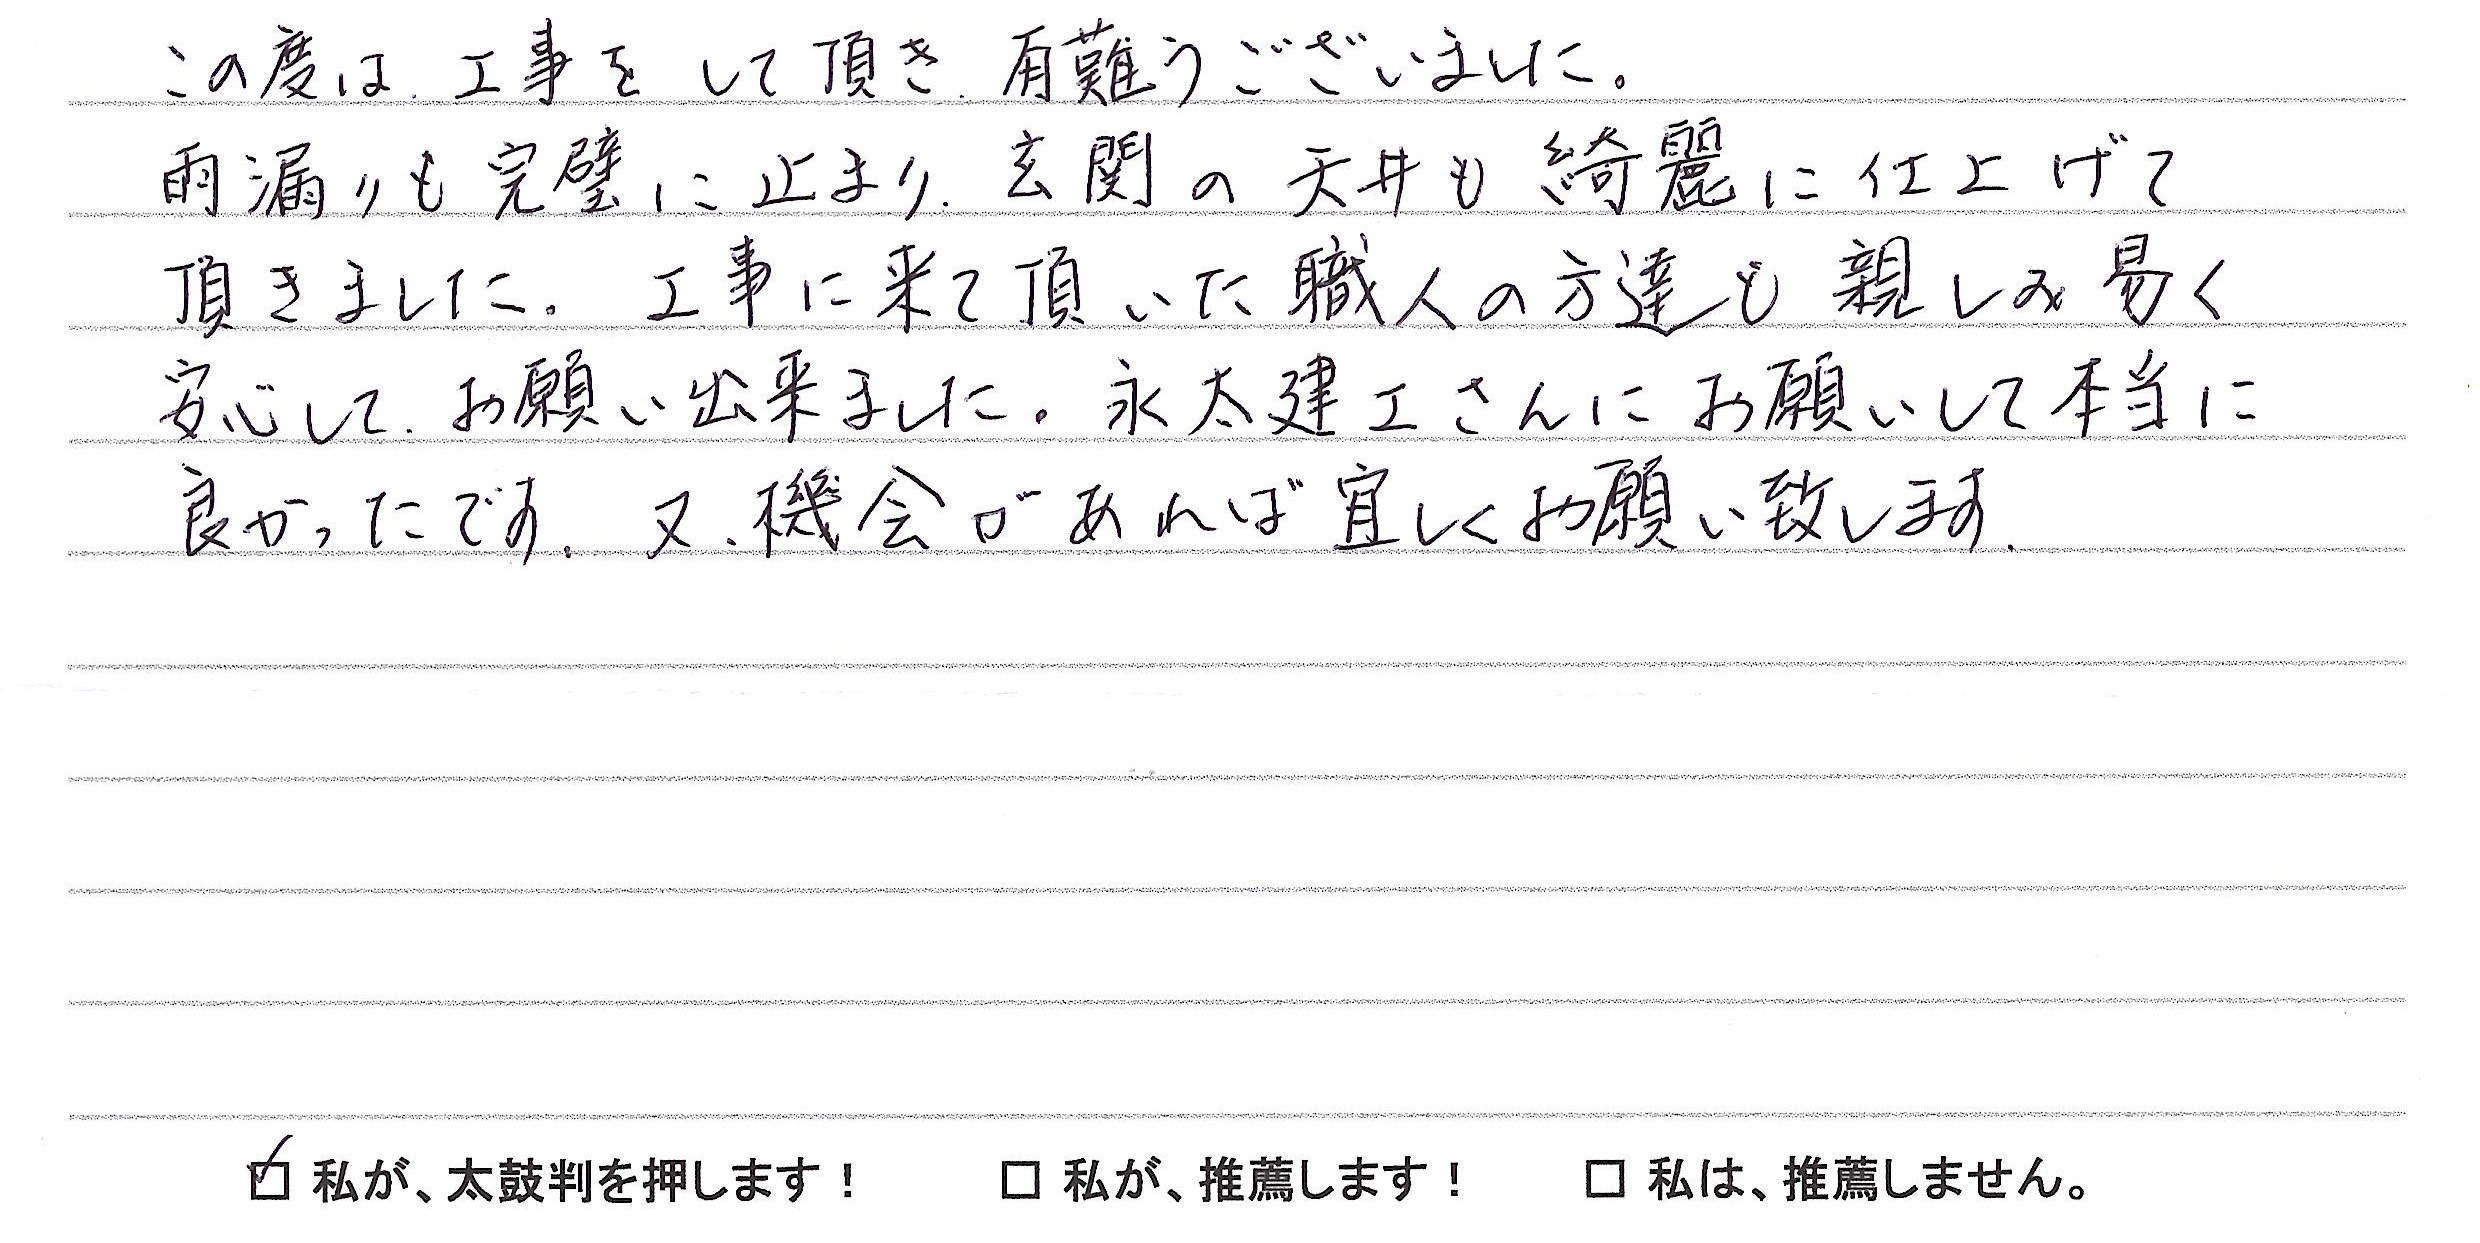 この度は、工事をして頂き、有難うございました。
雨漏りも完璧に止まり、玄関の天井も綺麗に仕上げて
頂きました。工事に来て頂いた職人の方達も親しみ易く
安心して、お願い出来ました。永太建工さんにお願いして本当に
良かったです。又、機会があれば宜しくお願い致します。
☑ 私が、太鼓判を押します！ □ 私が、推薦します！ □ 私は、推薦しません。